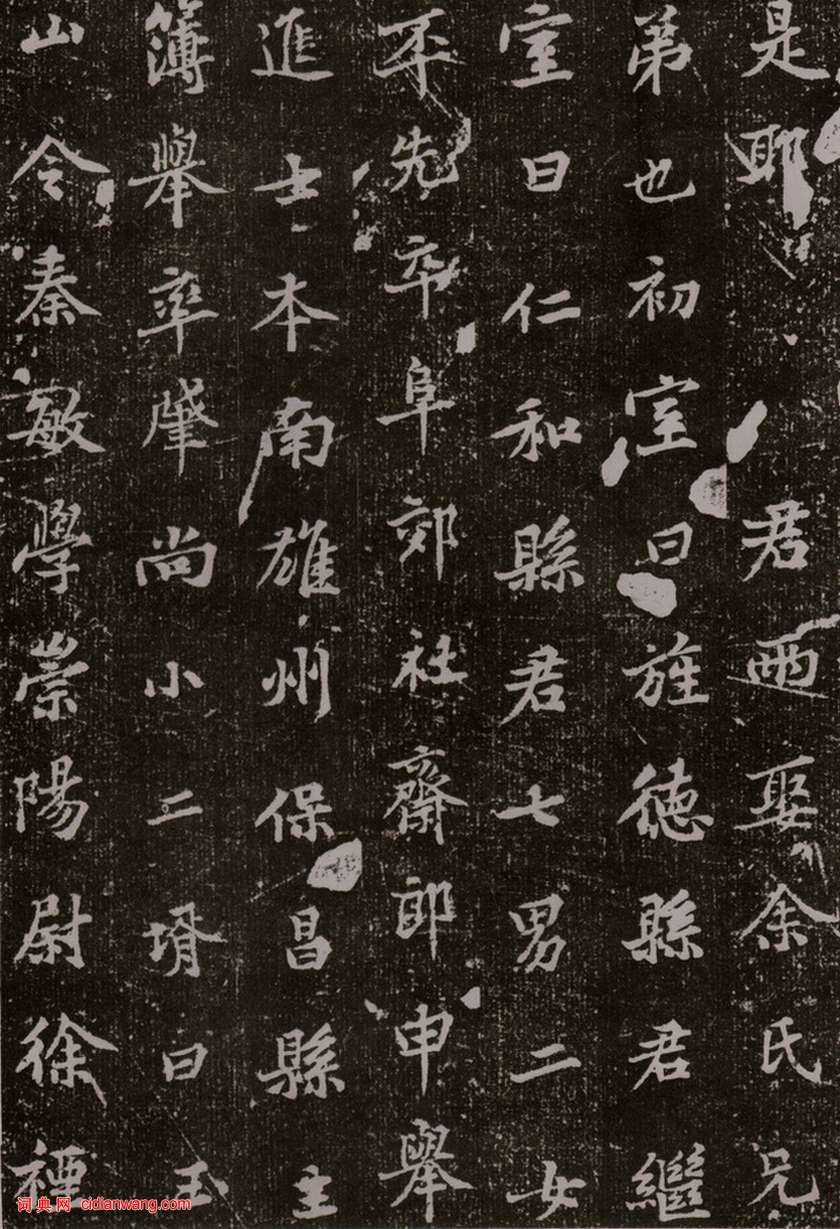 是耶君兩娶余氏兄
弟也初室曰旌德縣君繼
室曰仁和縣君七男二女
丕先卒阜郊社齋郎申舉
進士本南雄州保昌縣主
簿舉率肇尚小二壻曰玉
山令秦敏學崇陽尉徐禋
词典网 cidianwang.com